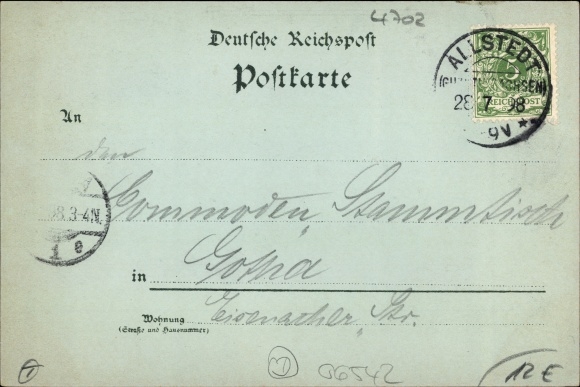 4702
Deutsche Reichspost
Postkarte
ALLSTEDT
28 7 98
9V **
REICHSPOST
An
den
Commoden Stammtisch
8.3-4N.
1 e
in Gotha
Wohnung Eisenacher Str.
(Straße und Hausnummer)
06542
12 €